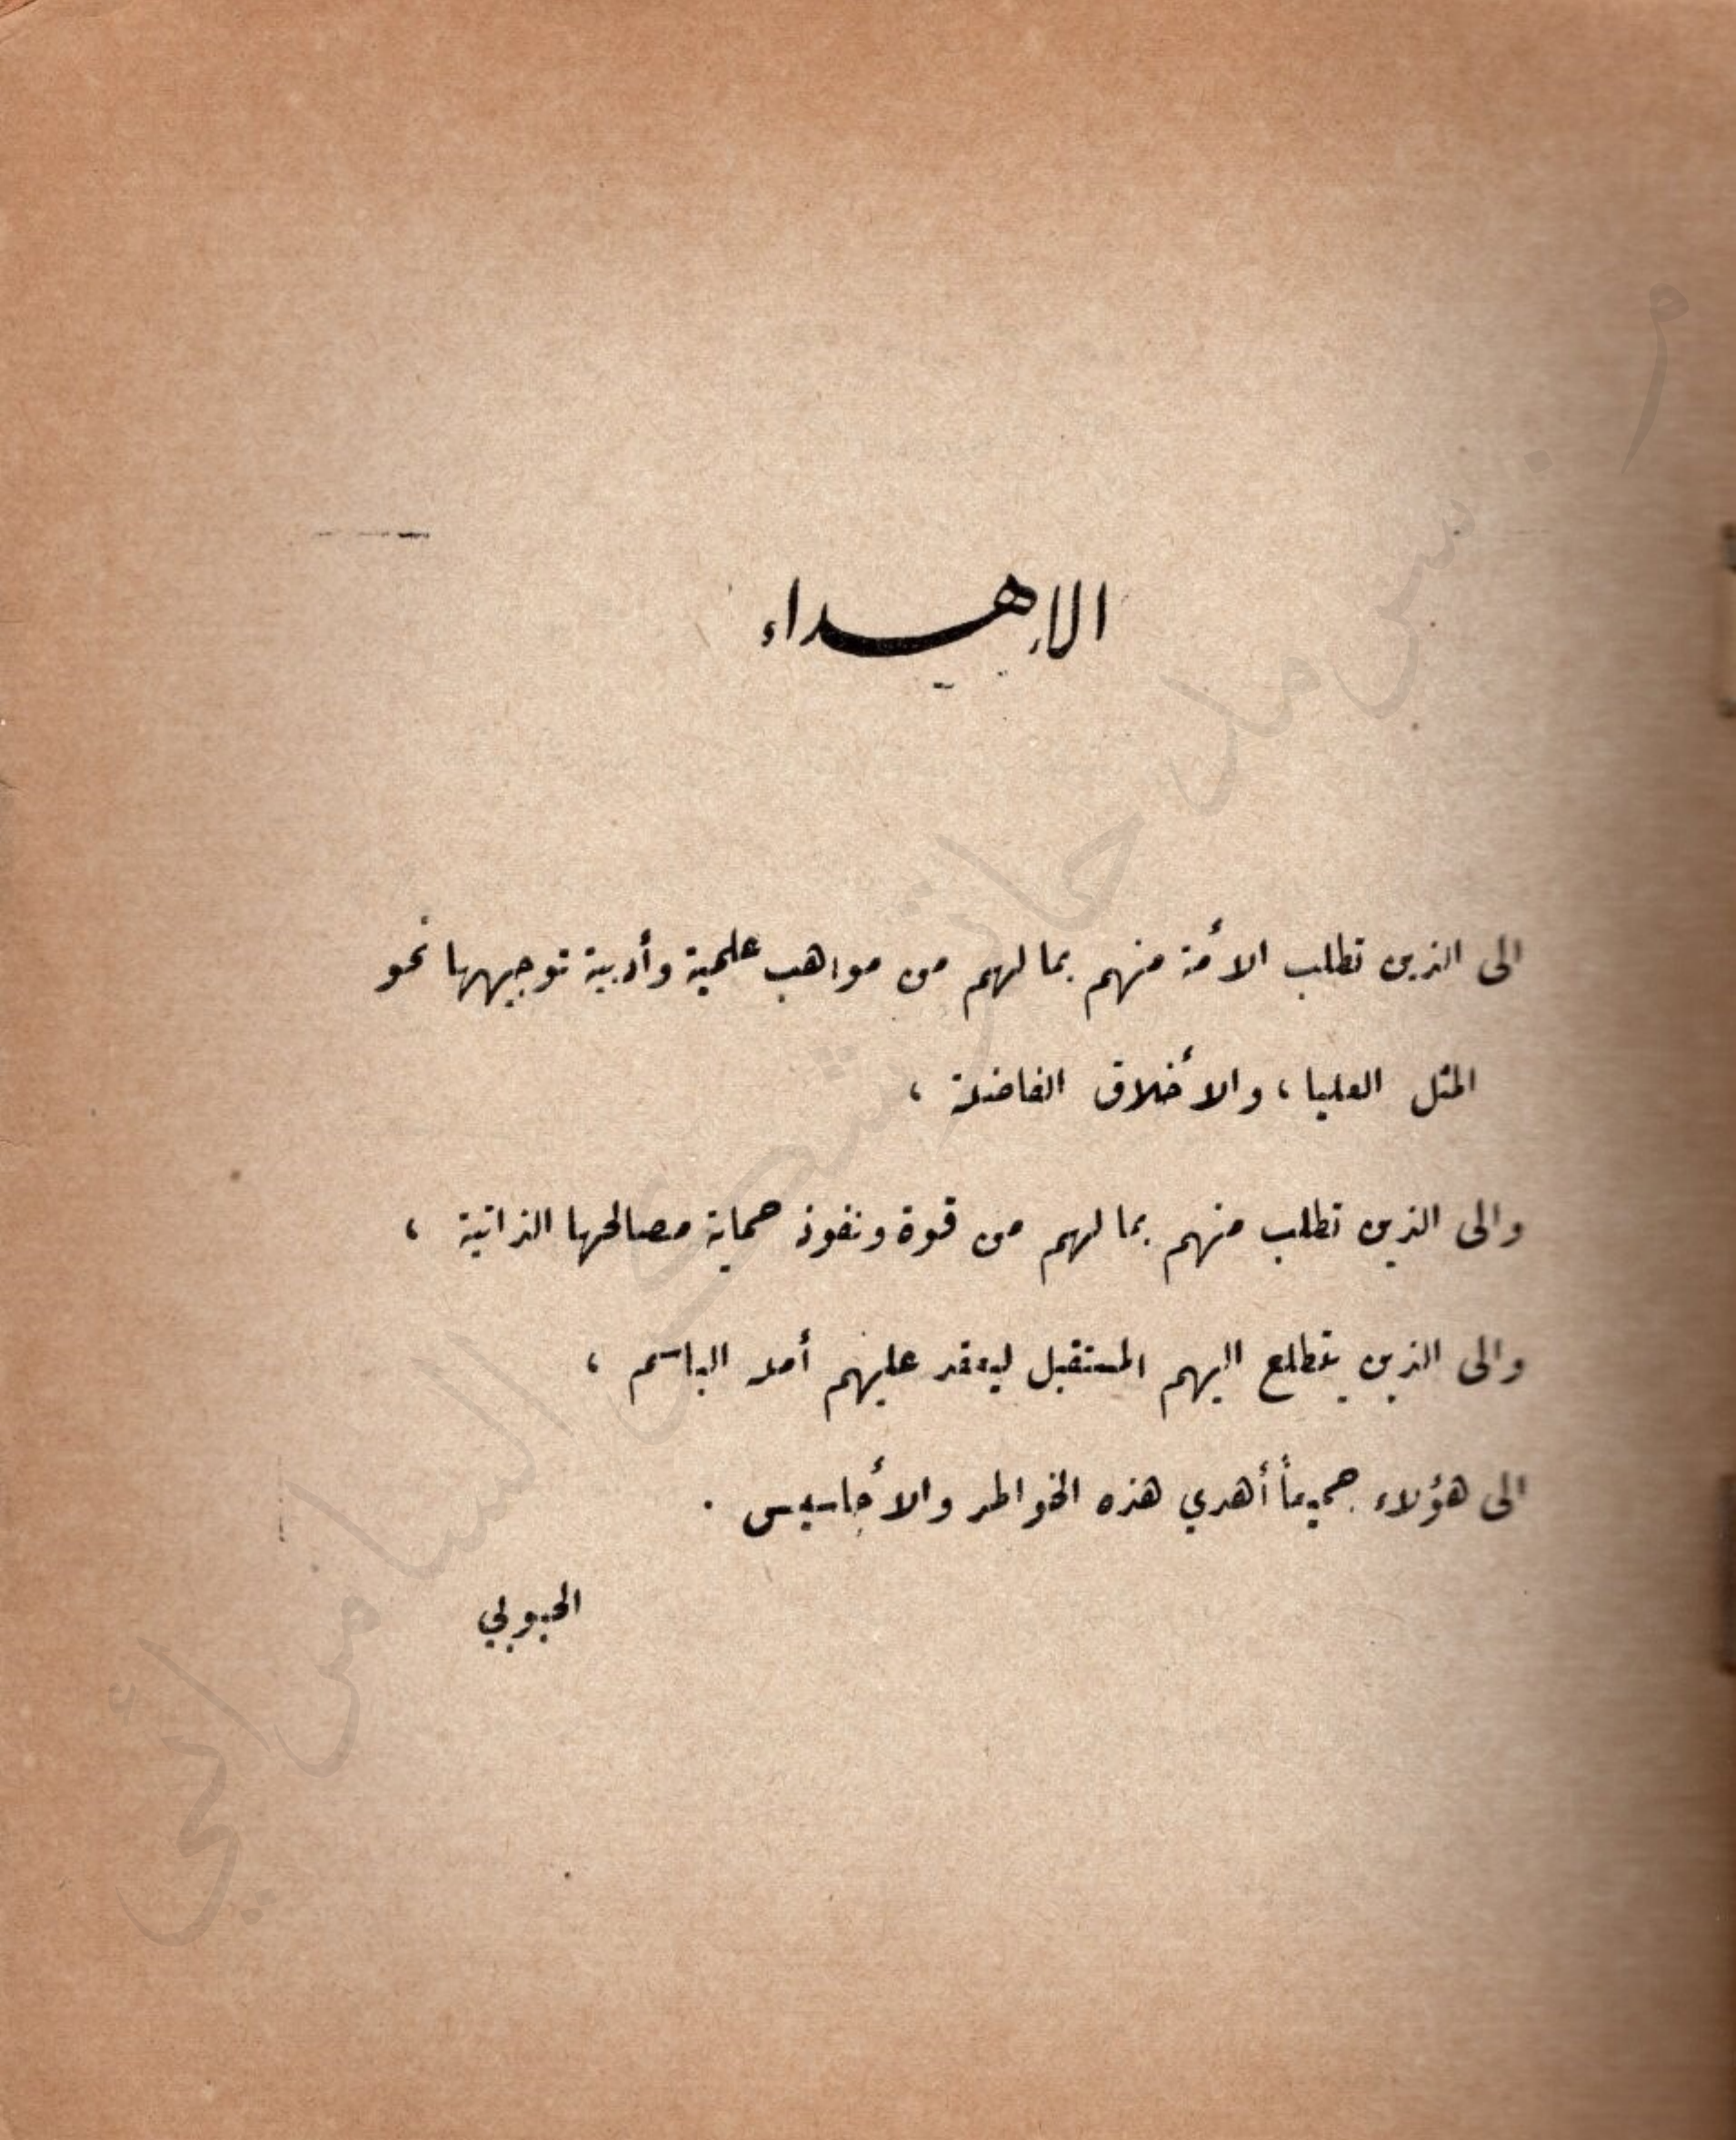 الإهداء
الى الذين تطلب الأمة منهم بما لهم من مواهب علمية وأدبية توجيهها نحو
المثل العليا ، والأخلاق الفاضلة ،
والى الذين تطلب منهم بما لهم من قوة ونفوذ حماية مصالحها الذاتية ،
والى الذين يتطلع اليهم المستقبل ليعقد عليهم أمله الباسم ،
الى هؤلاء جميعاً أهدي هذه الخواطر والأحاسيس .
الحبوبي
السامرائي